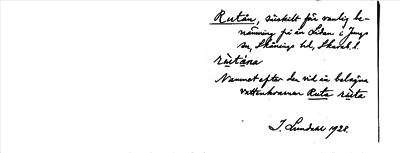 Rutån, särskilt för vanlig be-
nämning på ån Lidan i Jungs
sn, Skånings hd, Skarab. l.
rùtána
Namnet efter den vid ån belägna
vattenkvarnen Ruta rùta
I. Lundahl 1928.